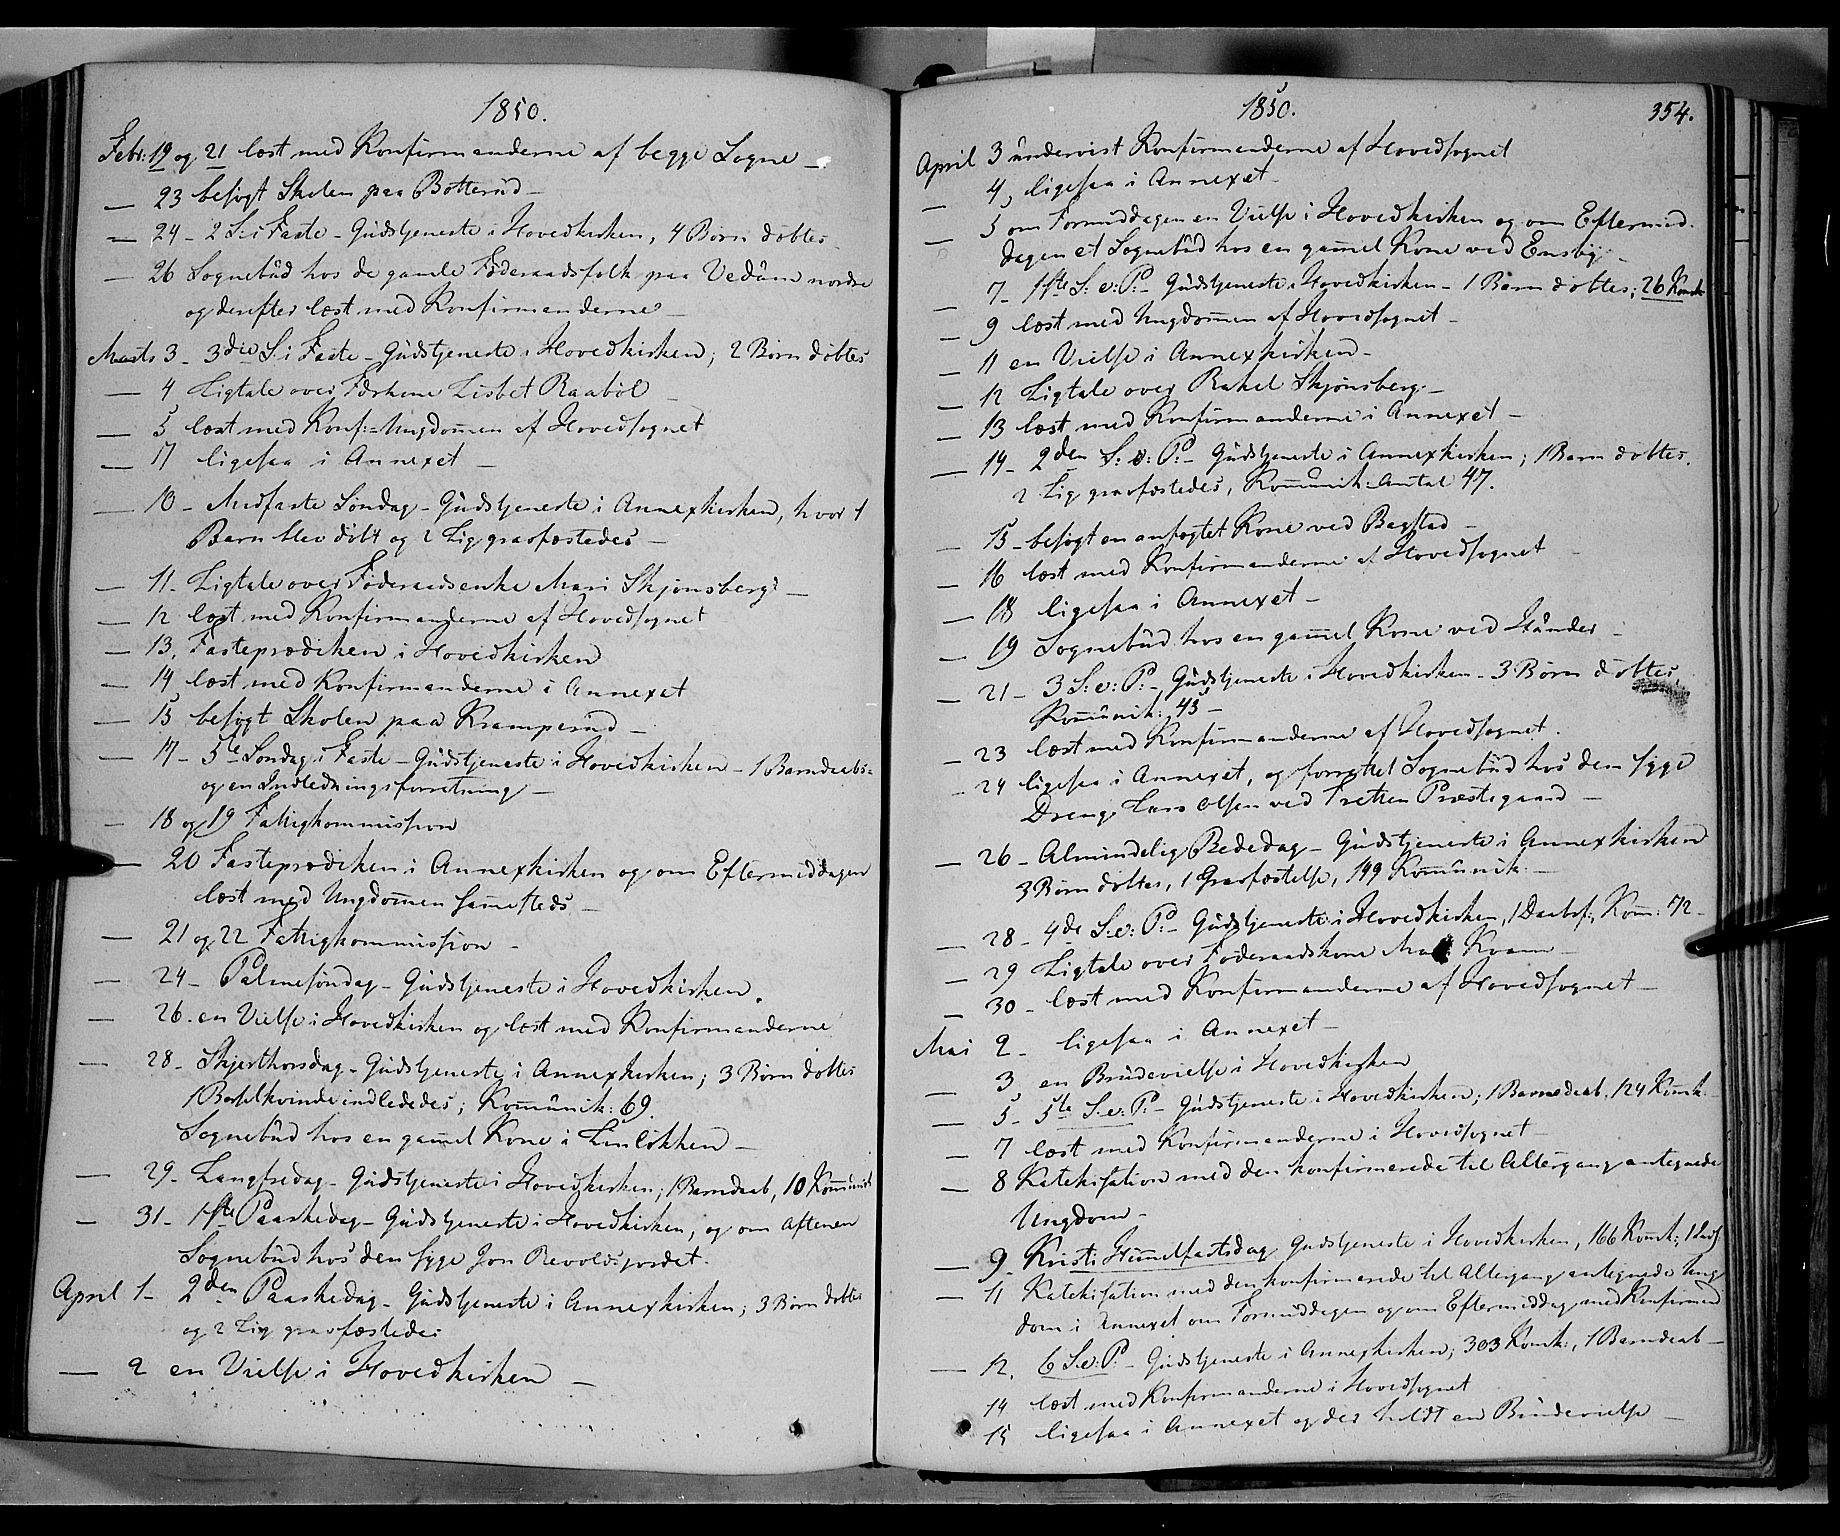 1850.
Febr: 19 og 21 læst med Konfirmanderne af begge Sogne —
— 23 besøgt Skolen paa Botterud —
— 24 – 2 S: i Faste – Gudstjeneste i Hovedkirken, 4 Børn døbtes.
— 26 Sognebud hos de gamle Føderaadsfolk paa Vedum nordre
og derefter læst med Konfirmanderne —
Marts 3 – 3die S. i Faste – Gudstjeneste i Hovedkirken; 2 Børn døbtes
— 4 Ligtale over Lisbet Raabøl —
— 5 læst med Konf:-Ungdom̄en af Hovedsognet
— 7 ligesaa i Annexet —
— 10 – Midfaste Søndag – Gudstjeneste i Annexkirken, hvor 1
Barn blev døbt og 2 Lig graafæstedes —
— 11 – Ligtale over Føderaadsenke Mari Skjønsberg —
— 12 læst med Konfirmanderne af Hovedsognet
— 13, Fasteprædiken i Hovedkirken
— 14 læst med Konfirmanderne i Annexet
— 15 besøgt Skolen paa Kramperud —
— 17 – 5te Søndag i Faste – Gudstjeneste i Hovedkirken – 1 Barndaabs-
og en Indledningsforretning —
— 18 og 19 Fattigkommission
— 20 Fasteprædiken i Annexkirken og om Eftermiddagen
læst med Ungdom̄en sam̄esteds —
— 21 og 22 Fattigkommission —
— 24 – Palmesøndag – Gudstjeneste i Hovedkirken.
— 26. en Vielse i Hovedkirken og læst med Konfirmanderne
— 28 – Skjærthorsdag – Gudstjeneste i Annexkirken; 3 Børn døbtes
1 Barselkvinde indlededes; Kom̄unik: 69.
Sognebud hos en gam̄el Kone i Linløkken —
— 29 – Langfredag – Gudstjeneste i Hovedkirken; 1 Barndaab, 10 Kom̄unik
— 31 – 1ste Paaskedag – Gudstjeneste i Hovedkirken, og om Aftenen
Sognebud hos den syge Jon Revoldsjordet.
April 1 – 2den Paaskedag – Gudstjeneste i Annexkirken; 3 Børn døbtes
og 2 Lig graafæstedes
— 2 en Vielse i Hovedkirken —
1850.
354.
April 3 undervist Konfirmanderne af Hovedsognet
— 4, ligesaa i Annexet
— 5 om Formiddagen en Vielse i Hovedkirken og om Eftermid-
dagen et Sognebud hos en gam̄el Kone ved Ensby —
— 7 – 1ste S: e: P: – Gudstjeneste i Hovedkirken – 1 Barn døbtes; 26 Komk
— 9 læst med Ungdom̄en af Hovedsognet —
— 11 en Vielse i Annexkirken —
— 12 Ligtale over Rakel Skjønsberg —
— 13 læst med Konfirmanderne i Annexet —
— 14 – 2den S: e: P: – Gudstjeneste i Annexkirken; 1 Barn døbtes.
2 Lig graafæstedes, Kom̄unik: Antal 47.
— 15 – besøgt en anfægtet Kone ved Bagstad —
— 16 læst med Konfirmanderne af Hovedsognet
— 18 ligesaa i Annexet —
— 19 Sognebud hos en gam̄el Kone ved —
— 21 – 3 S: e: P: – Gudstjeneste i Hovedkirken – 3 Børn døbtes,
Kom̄unik: 45 –
— 23 læst med Konfirmanderne af Hovedsognet.
— 24 ligesaa i Annexet, og forrettet Sognebud hos den syge
Dreng Lars Olsen ved Tretten Præstegaard —
— 26 – Almindelig Bededag – Gudstjeneste i Annexkirken
3 Børn døbtes, 1 Graafæstelse, 149 Kom̄unik: —
— 28 – 4de S: e: P: – Gudstjeneste i Hovedkirken, 1 Daabsf:, Kom̄: 72 –
— 29 Ligtale over Føderaadskone Kvam —
— 30 – læst med Konfirmanderne af Hovedsognet —
Mai 2 – ligesaa i Annexet —
— 3 en Brudevielse i Hovedkirken
— 5 – 5te S: e: P: – Gudstjeneste i Hovedkirken; 1 Barnedaab, 124 Komk. –
— 7 læst med Konfirmanderne i Hovedsognet —
— 8 Katekisation med den konfirmerede til Altergang antegnede
Ungdom —
— 9 – Kristi Him̄elfartsdag Gudstjeneste i Hovedkirken, 166 Komk:,
— 11 Katekisation med den konfirmerede til Altergang antegnede Ung
dom i Annexet om Formiddagen og om Eftermiddag med Konfirmand
— 12. 6 S. e: P: – Gudstjeneste i Annexkirken; 303 Komk:, 1 Barndaab —
14 læst med Konfirmanderne i Hovedsognet
15 ligesaa i Annexet og der holdt en Brudevielse —